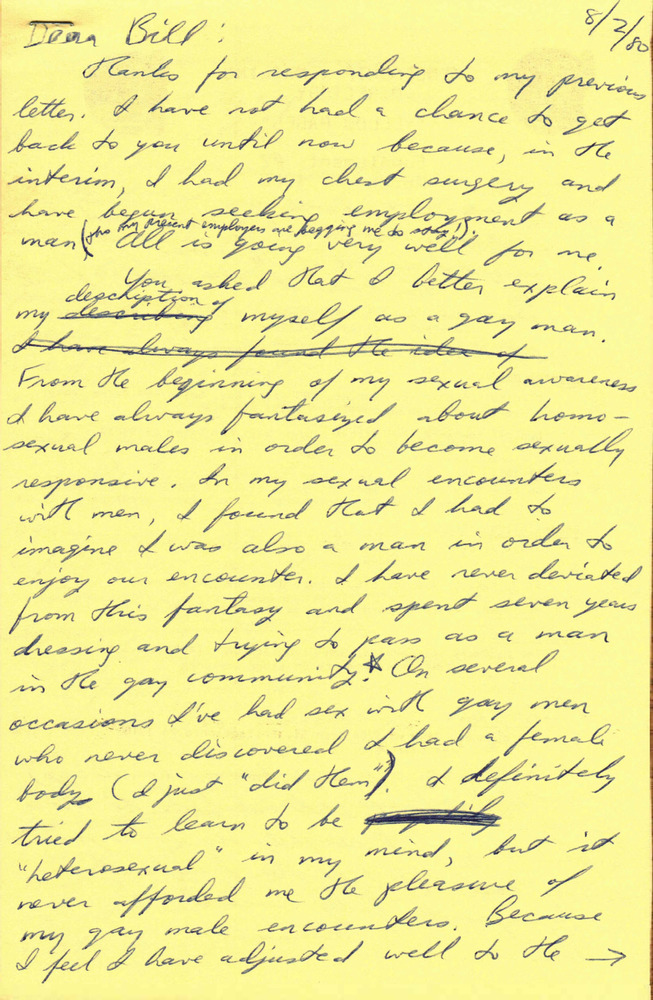 8/2/80
Dear Bill:
Thanks for responding to my previous
letter. I have not had a chance to get
back to you until now because, in the
interim, I had my chest surgery and
have begun seeking employment as a
(tho my present employers are begging me to stay!).
man All is going very well for me.
You asked that I better explain
description of
my describing myself as a gay man.
I have always found the idea of
From the beginning of my sexual awareness
I have always fantasized about homo-
sexual males in order to become sexually
responsive. In my sexual encounters
with men, I found that I had to
imagine I was also a man in order to
enjoy our encounter. I have never deviated
from this fantasy and spent seven years
dressing and trying to pass as a man
in the gay community.* On several
occasions I've had sex with gay men
who never discovered I had a female
body (I just "did them"). I definitely
tried to learn to be
"heterosexual" in my mind, but it
never afforded me the pleasure of
my gay male encounters. Because
I feel I have adjusted well to the →